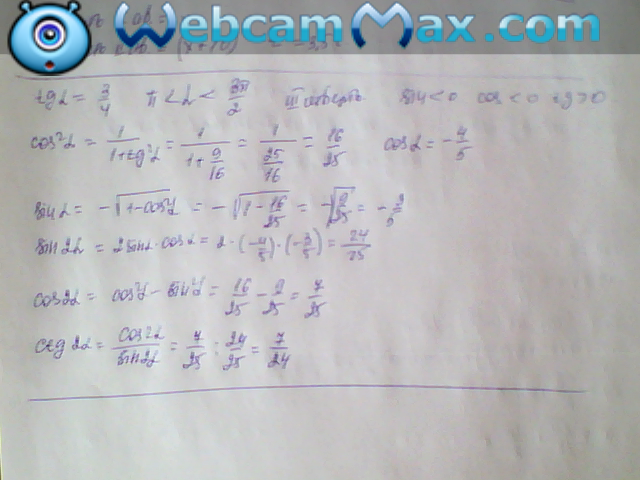 WebcamMax.com
tg α = 3/4 π < α < 3π/2 III четверть sin < 0 cos < 0 tg > 0
cos²α = 1/(1+tg²α) = 1/(1 + 9/16) = 1/(25/16) = 16/25 cos α = -4/5
sin α = -√(1-cos²α) = -√(1 - 16/25) = -√(9/25) = -3/5
sin 2α = 2 sin α · cos α = 2 · (-4/5) · (-3/5) = 24/25
cos 2α = cos²α - sin²α = 16/25 - 9/25 = 7/25
ctg 2α = cos 2α / sin 2α = 7/25 : 24/25 = 7/24